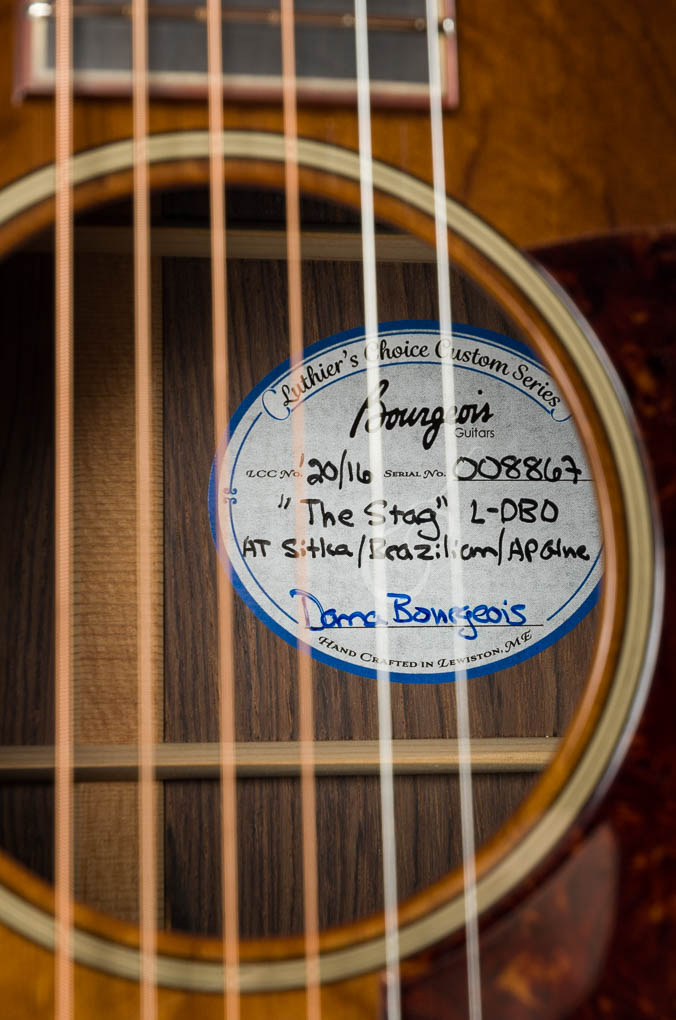 Luthier's Choice Custom Series
Bourgeois
Guitars
LCC No. '20/16 Serial No. 008867
"The Stag" L-DBO
AT Sitka/Brazilian/AP Glue
Dana Bourgeois
Hand Crafted in Lewiston, ME